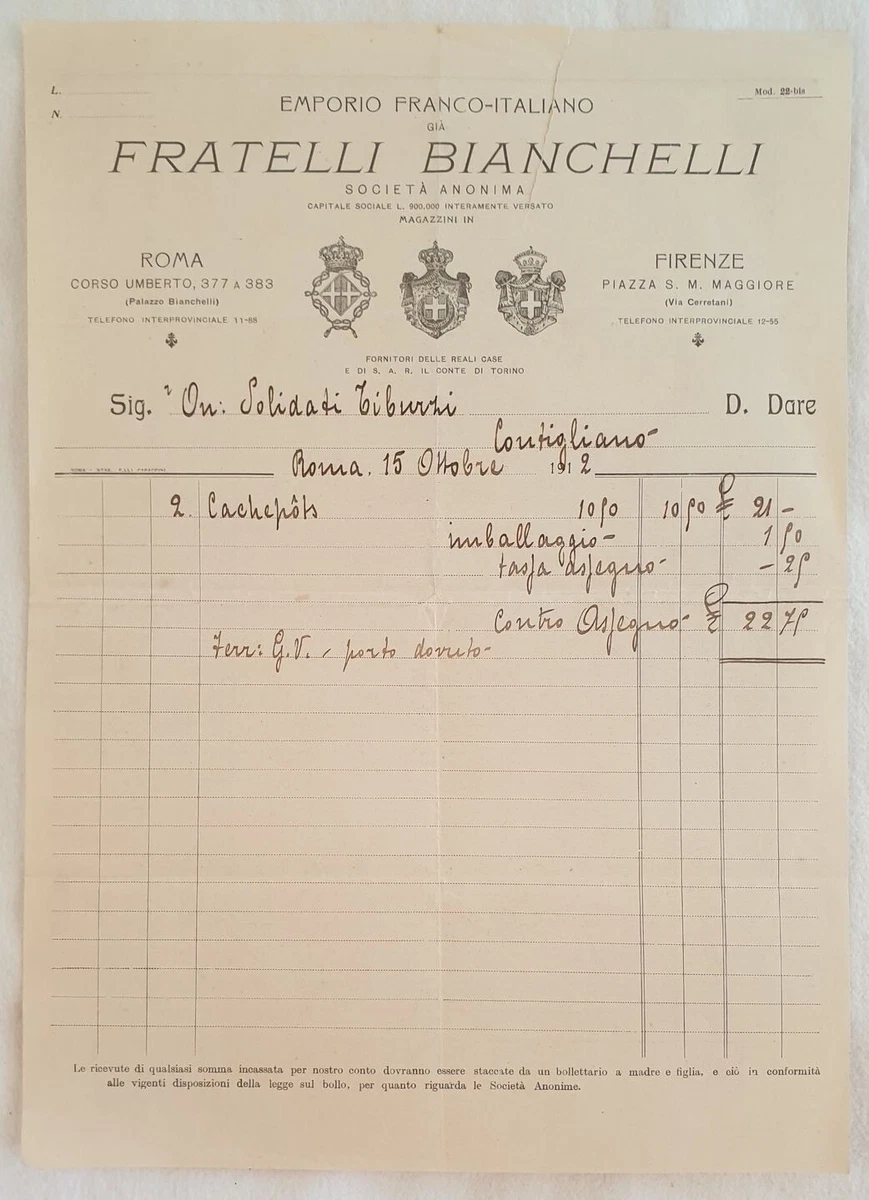 L.
N.
Mod. 22-bis
EMPORIO FRANCO-ITALIANO
GIÀ
FRATELLI BIANCHELLI
SOCIETÀ ANONIMA
CAPITALE SOCIALE L. 900.000 INTERAMENTE VERSATO
MAGAZZINI IN
ROMA
CORSO UMBERTO, 377 A 383
(Palazzo Bianchelli)
TELEFONO INTERPROVINCIALE 11-88
FIRENZE
PIAZZA S. M. MAGGIORE
(Via Cerretani)
TELEFONO INTERPROVINCIALE 12-55
FORNITORI DELLE REALI CASE
E DI S. A. R. IL CONTE DI TORINO
Sig. r On: Solidati Tiburzi D. Dare
Contigliano
Roma, 15 Ottobre 1912
2. Cachepôts 10 50 10 50 £ 21 -
imballaggio - 1 50
tassa assegno - - 25
Contro Assegno - £ 22 75
Ferr: G.V. - porto dovuto -
Le ricevute di qualsiasi somma incassata per nostro conto dovranno essere staccate da un bollettario a madre e figlia, e ciò in conformità
alle vigenti disposizioni della legge sul bollo, per quanto riguarda le Società Anonime.